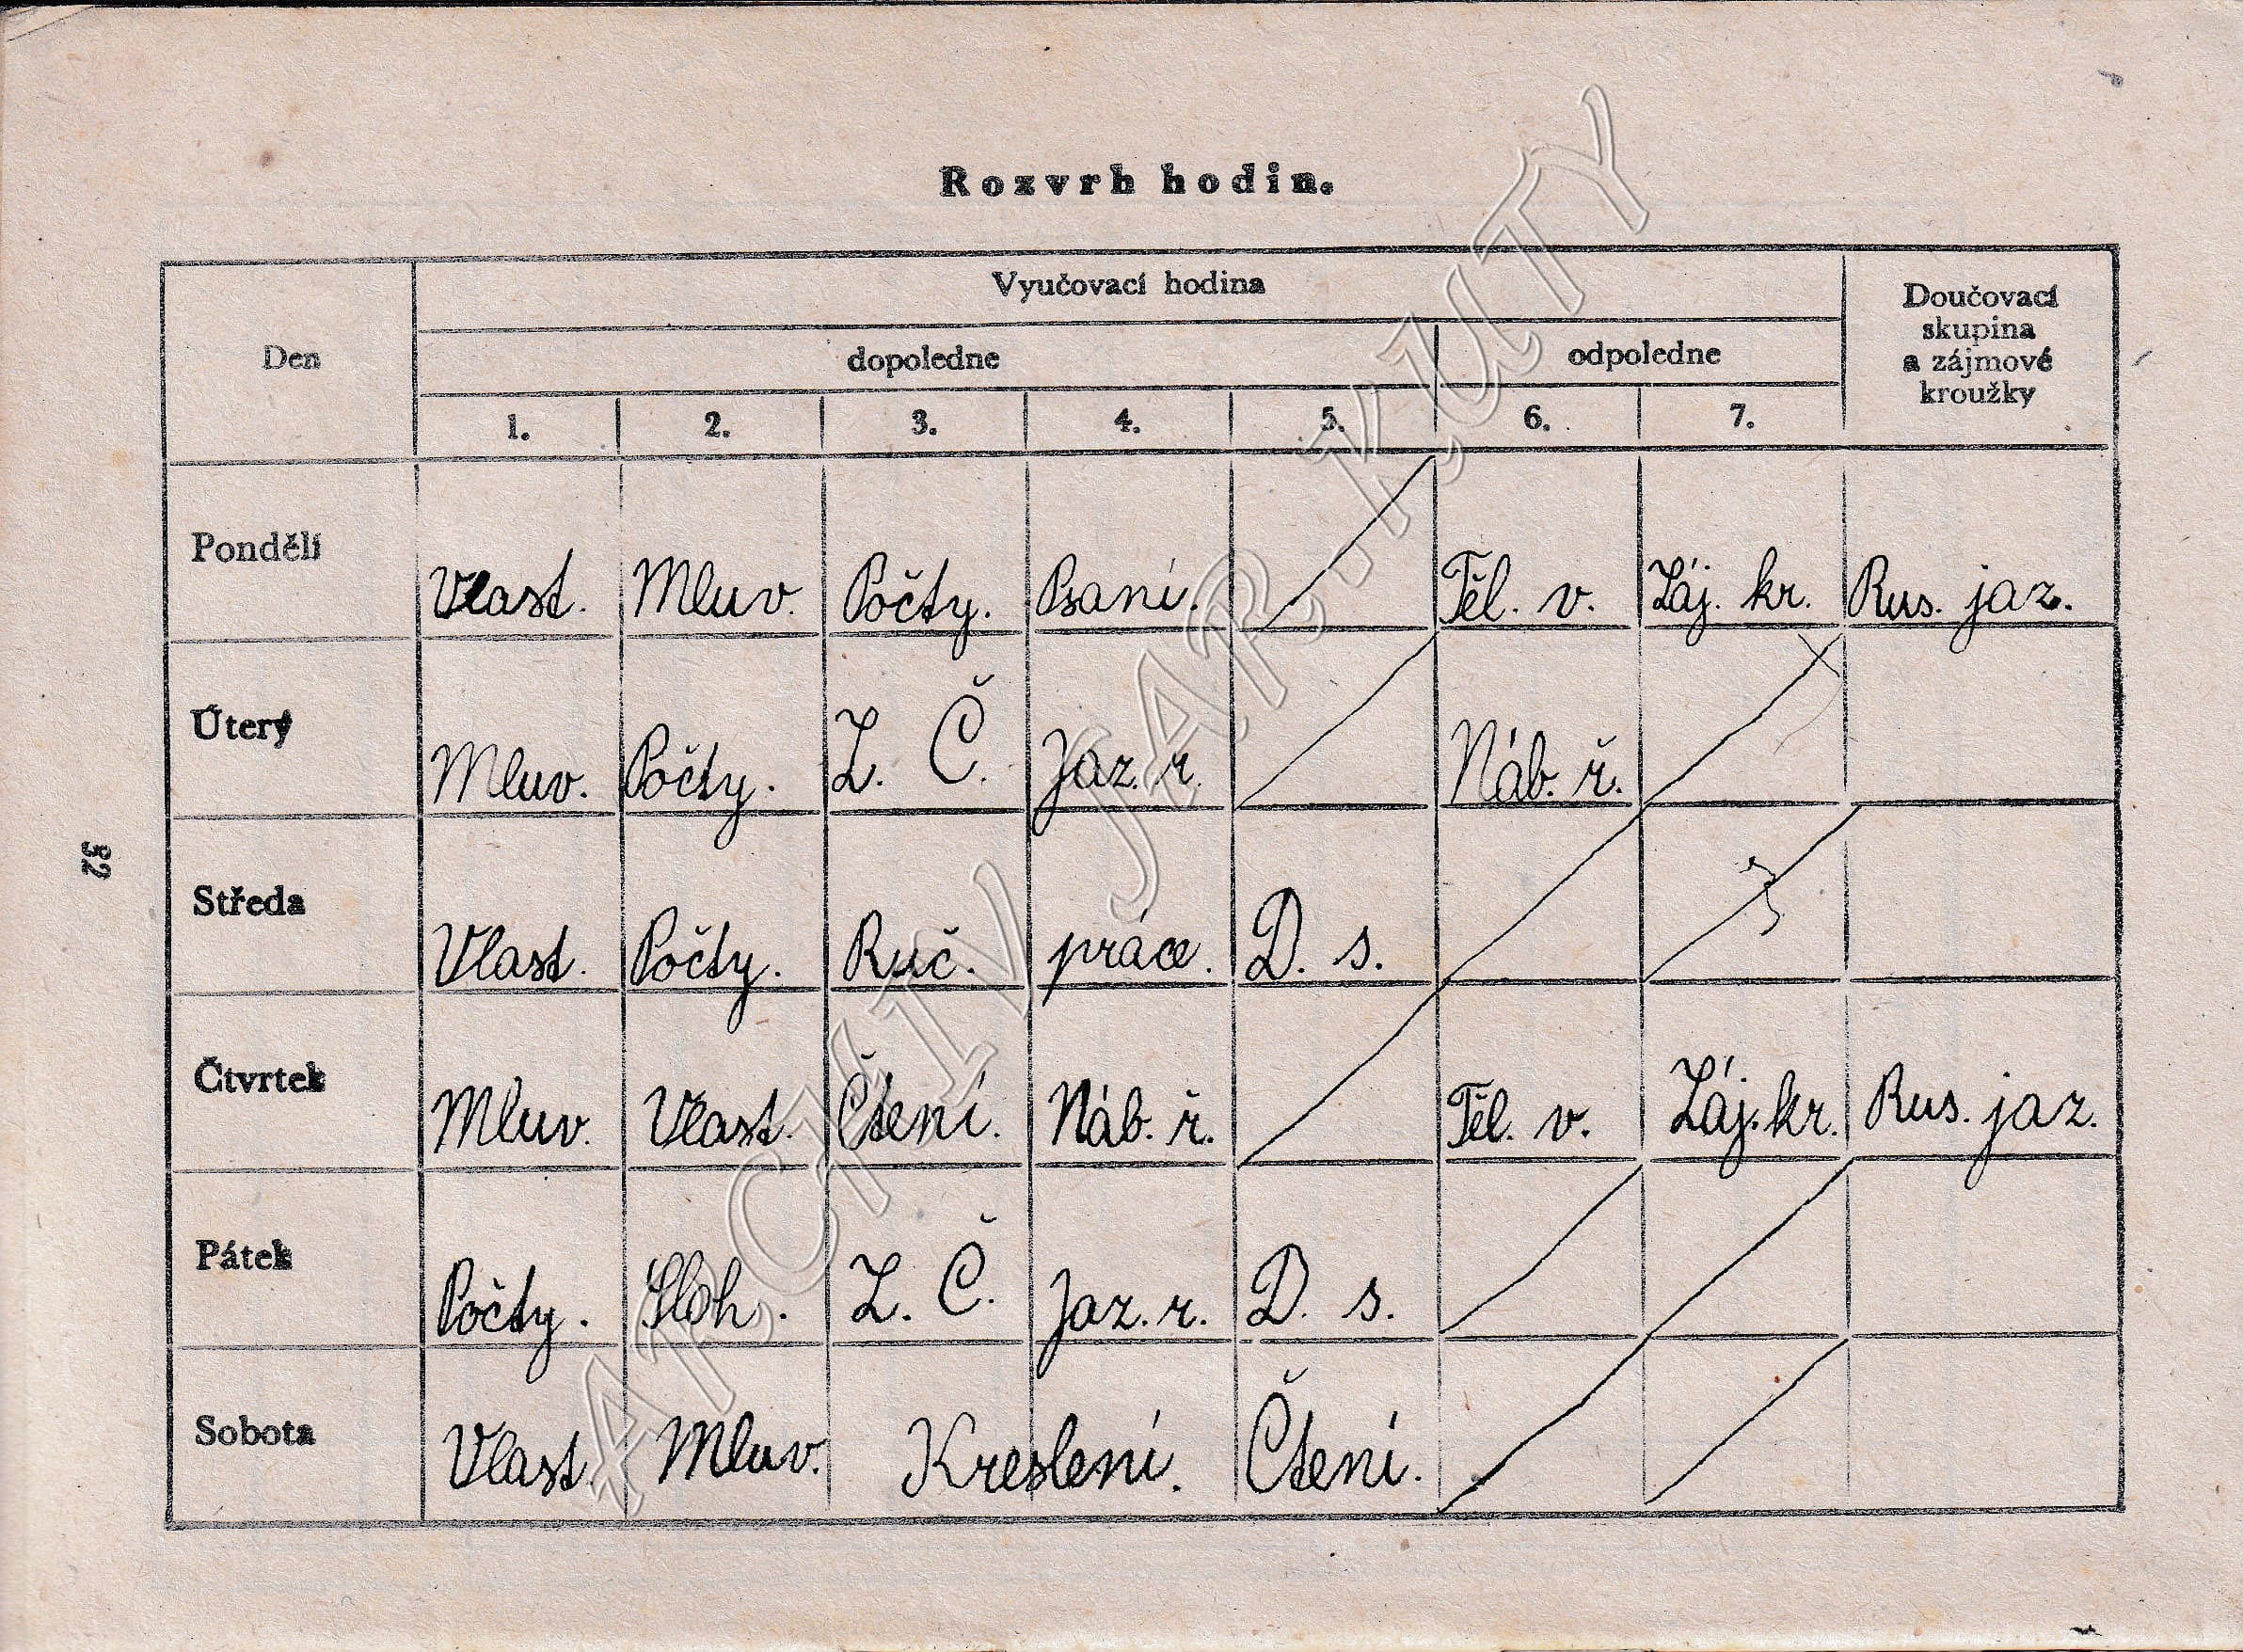 Rozvrh hodin.
Den
Vyučovací hodina
Doučovací
skupina
a zájmové
kroužky
dopoledne
odpoledne
1. 2. 3. 4. 5. 6. 7.
Pondělí Vlast. Mluv. Počty. Psaní. Těl. v. Záj. kr. Rus. jaz.
Úterý Mluv. Počty. Z. Č. Jaz. r. Náb. ř.
Středa Vlast. Počty. Ruč. práce. D. s.
Čtvrtek Mluv. Vlast. Čtení. Náb. ř. Těl. v. Záj. kr. Rus. jaz.
Pátek Počty. Sloh. Z. Č. Jaz. r. D. s.
Sobota Vlast. Mluv. Kreslení. Čtení.
32
ARCHIV JAR. KUTY